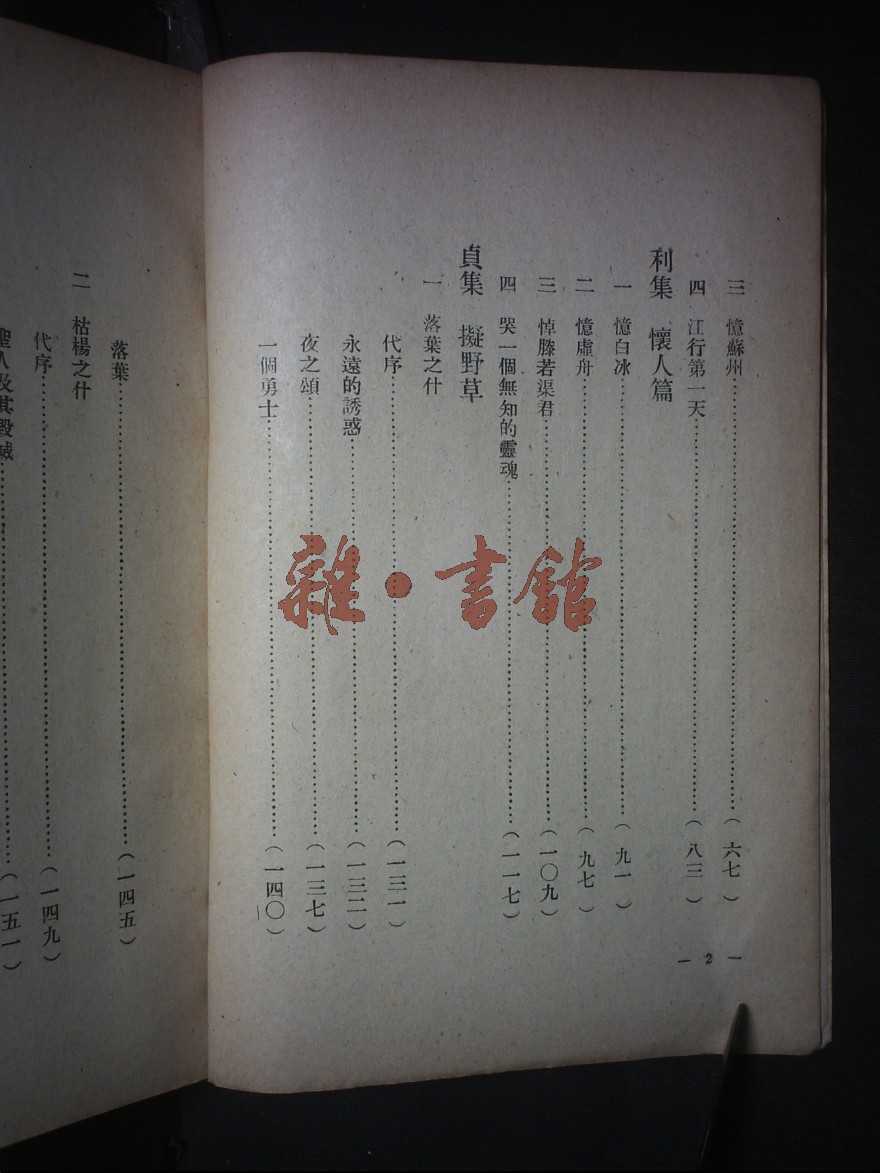 三 憶蘇州……（六七）
四 江行第一天……（八三）
利集 懷人篇
一 憶白冰……（九一）
二 憶虛舟……（九七）
三 悼滕若渠君……（一〇九）
四 哭一個無知的靈魂……（一一七）
貞集 擬野草
一 落葉之什
代序……（一三一）
永遠的誘惑……（一三二）
夜之頌……（一三七）
一個勇士……（一四〇）
— 2 —
落葉……（一四五）
二 枯楊之什
代序……（一四九）
聖人及其毀滅……（一五一）
雜·書館